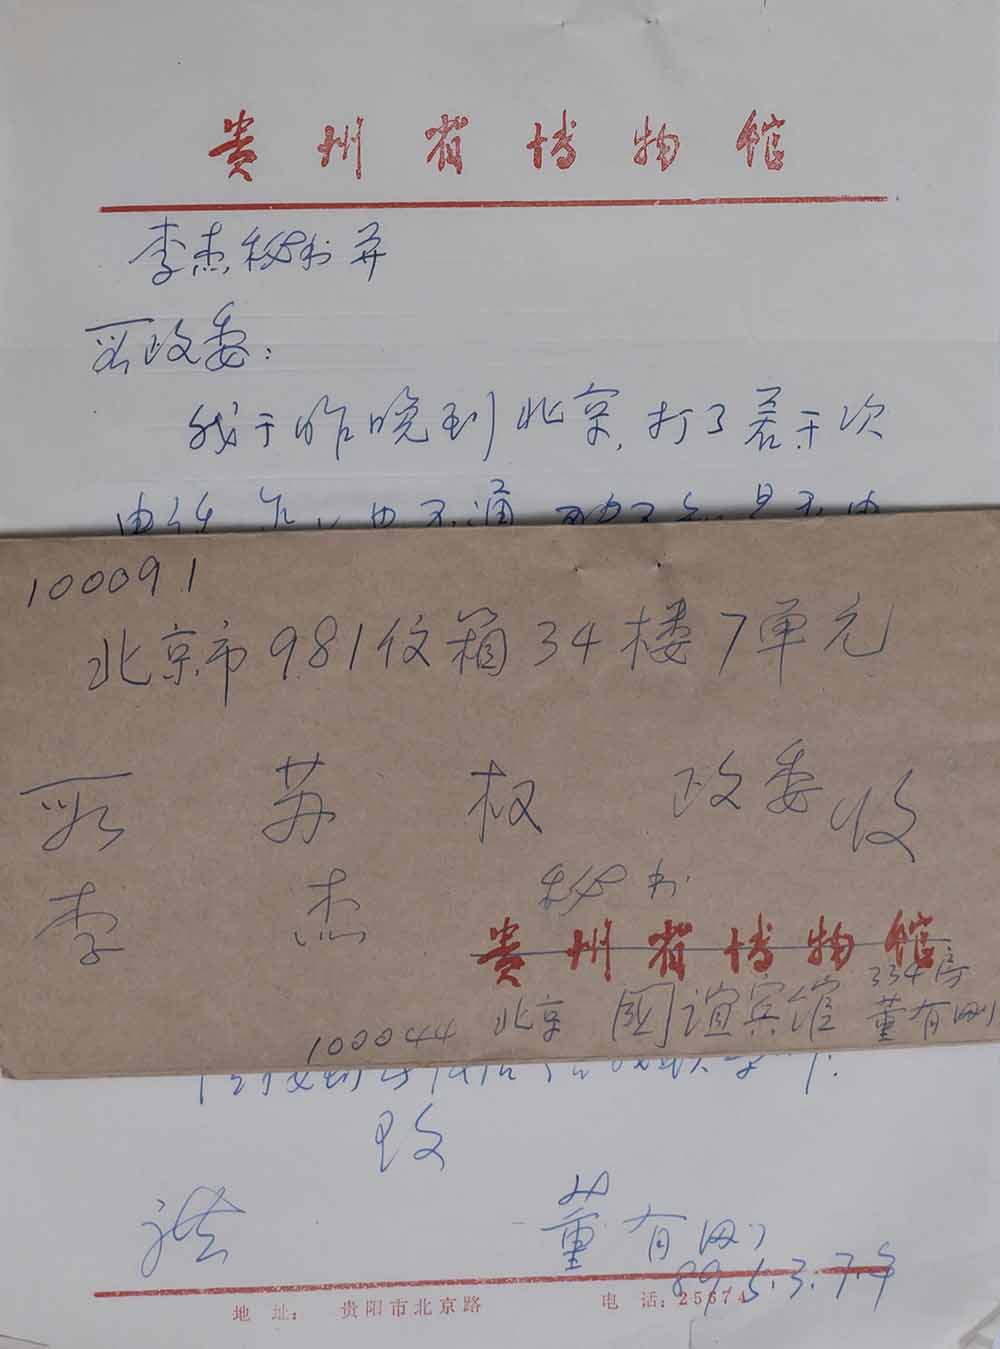 贵州省博物馆
李杰秘书并
贾政委：
我于昨晚到北京，打了若干次
100091
北京市981信箱34楼7单元
贾苏权政委收
李杰秘书
贵州省博物馆
334房
100044 北京 國谊宾馆 董有刚
致
礼
董有刚
89.5.3.7午
地 址： 贵阳市北京路 电 话：25674